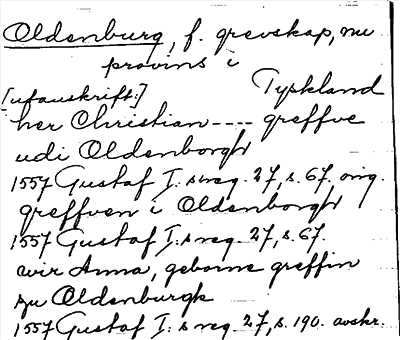 Oldenburg, f. grevskap, nu
provins i
Tyskland
[utanskrift:]
her Christian ---- greffve
udi Oldenborgh
1557 Gustaf I:s reg. 27, s. 67, orig.
greffven i Oldenborgh
1557 Gustaf I:s reg. 27, s. 67.
wir Anna, geborne greffin
zu Oldenburgk
1557 Gustaf I:s reg. 27, s. 190. avskr.